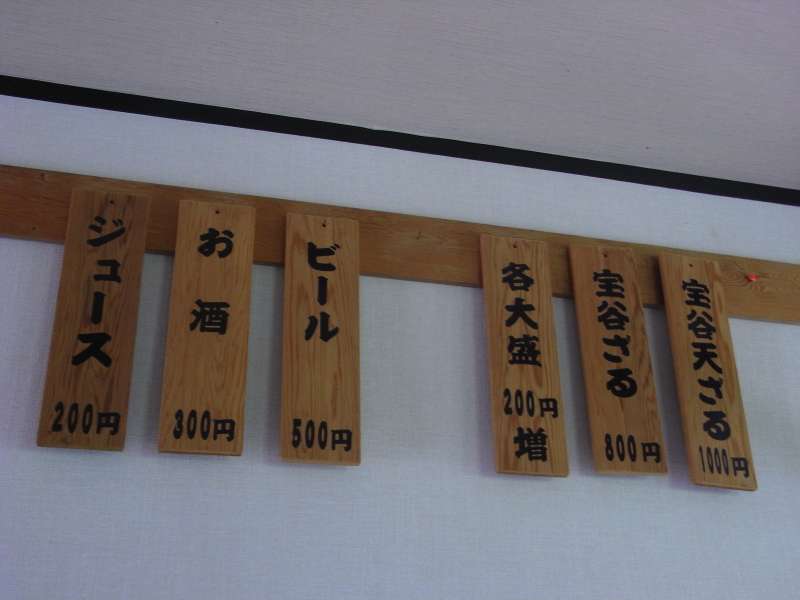 宝谷天ざる
1000円
宝谷ざる
800円
各大盛
200円
増
ビール
500円
お酒
300円
ジュース
200円